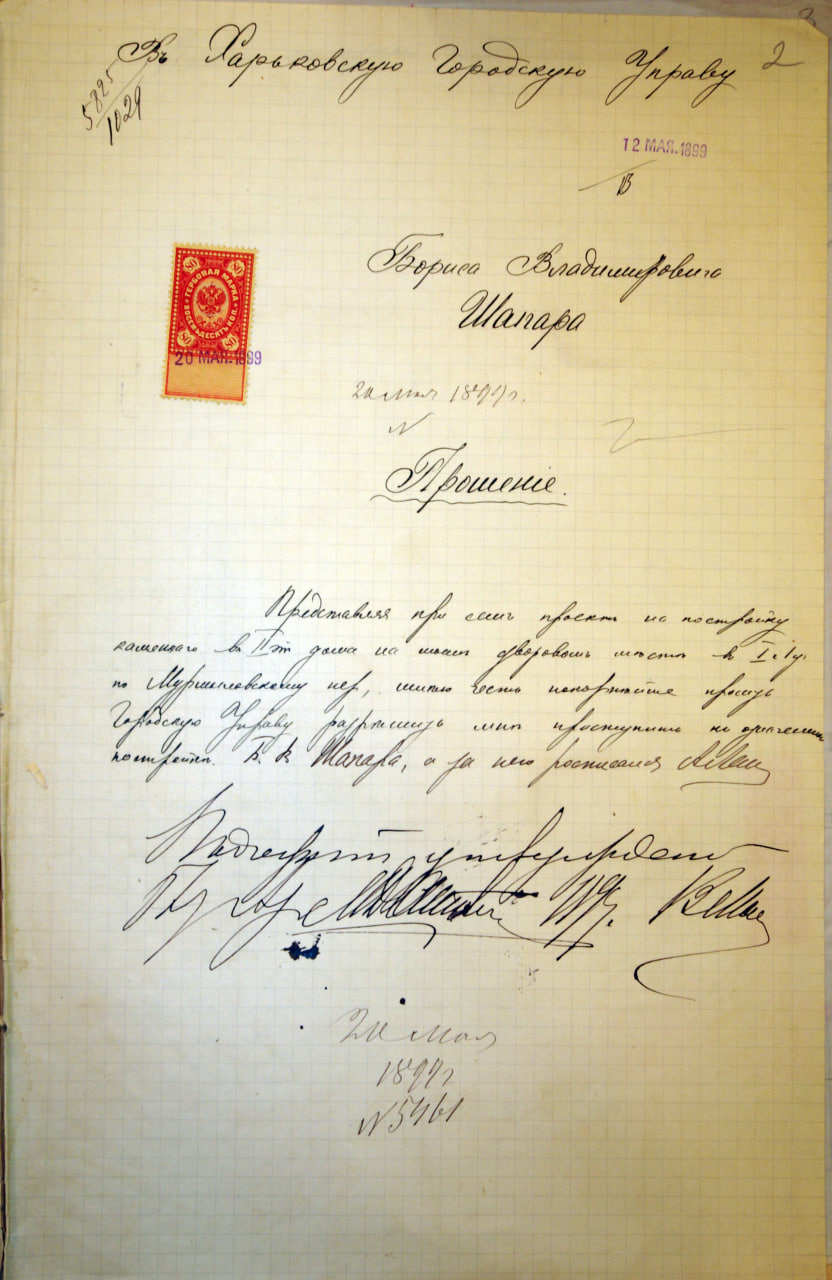 Въ Харьковскую Городскую Управу
2
5825
1029
12 МАЯ.1899
Бориса Владимировича
Шапара
80 80
ГЕРБОВАЯ МАРКА
ВОСЕМЬДЕСЯТЪ КОП.
80 80
20 МАЯ.1899
20 мая 1899 г.
N
Прошеніе.
Представляя при семъ проектъ на постройку
каменнаго въ II эт дома на моемъ дворовомъ мѣстѣ въ I ч.
по пер, имѣю честь покорнѣйше просить
Городскую Управу разрѣшить мнѣ приступить къ означенной
постройкѣ. Б. В Шапара, а за него росписался
Подлежитъ утвержденію
20 мая
1899 г
N 5461